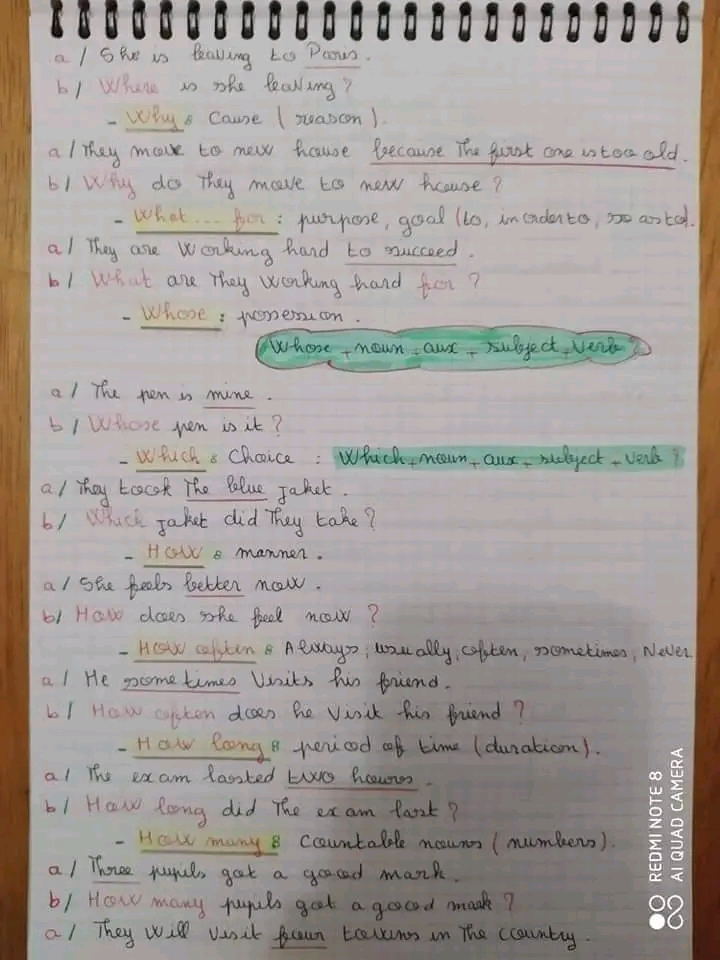 a/ She is leaving to Paris.
b/ Where is she leaving?
- Why: Cause (reason).
a/ They move to new house because The first one is too old.
b/ Why do They move to new house?
- What... for: purpose, goal (to, in order to, so as to).
a/ They are Working hard to succeed.
b/ What are They Working hard for?
- Whose: possession.
Whose + noun + aux + subject + Verb?
a/ The pen is mine.
b/ Whose pen is it?
- Which: Choice: Which + noun + aux + subject + verb?
a/ They toook The blue jaket.
b/ Which jaket did They take?
- How: manner.
a/ She feels better now.
b/ How does she feel now?
- How often: Always, usually, often, sometimes, Never
a/ He sometimes Visits his friend.
b/ How often does he Visit his friend?
- How long: period of time (duration).
a/ The exam lasted two hours.
b/ How long did The exam last?
- How many: Countable nouns (numbers).
a/ Three pupils got a good mark.
b/ How many pupils got a good mark?
a/ They Will Visit four towns in The country.
REDMI NOTE 8
AI QUAD CAMERA